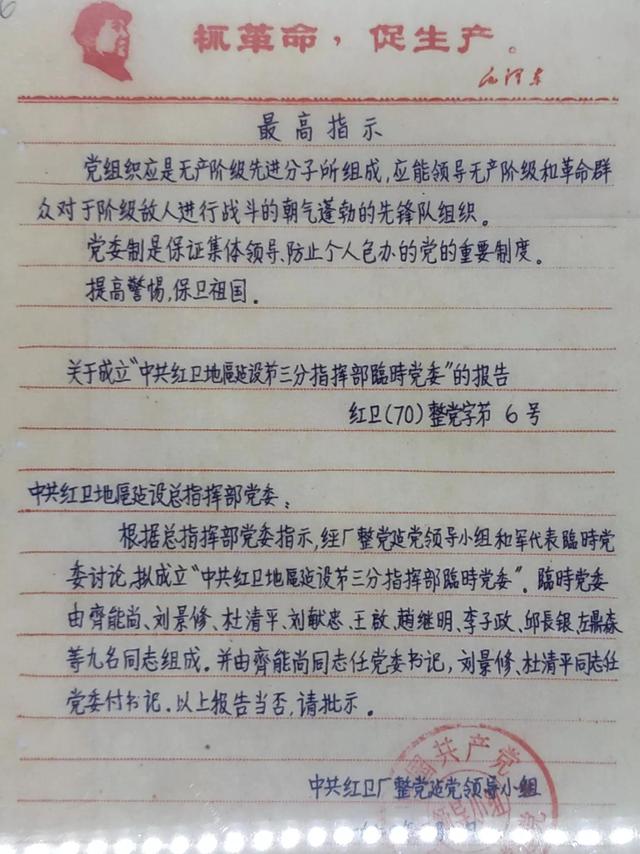 抓革命，促生产。
毛泽东
最高指示
党组织应是无产阶级先进分子所组成,应能领导无产阶级和革命群
众对于阶级敌人进行战斗的朝气蓬勃的先锋队组织。
党委制是保证集体领导、防止个人包办的党的重要制度。
提高警惕,保卫祖国。
关于成立“中共红卫地區建设第三分指挥部臨時党委”的报告
红卫(70)整党字第 6 号
中共红卫地區建设总指挥部党委:
根据总指挥部党委指示,经厂整党建党领导小组和军代表臨時党
委讨论,拟成立“中共红卫地區建设第三分指挥部臨時党委”。臨時党委
由齊能尚、刘景修、杜清平、刘献忠、王啟、趙继明、李子政、邱長银、左鼎森
等九名同志组成。并由齊能尚同志任党委书记,刘景修、杜清平同志任
党委付书记。以上报告当否,请批示。
中共红卫厂整党建党领导小组
国共产党